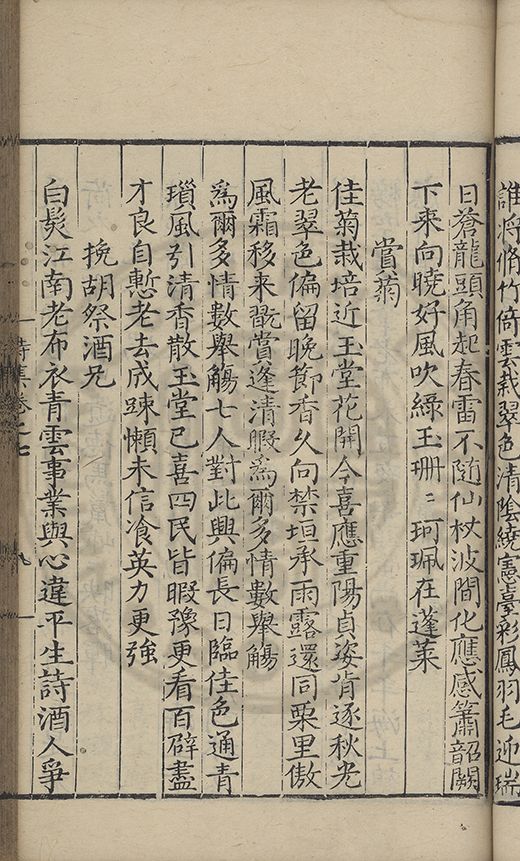 誰將脩竹倚雲栽翠色清陰繞憲臺彩鳳羽毛迎瑞
日蒼龍頭角起春雷不隨仙杖波間化應感簫韶闕
下來向曉好風吹綠玉珊〻珂珮在蓬萊
賞菊
佳菊栽培近玉堂花開今喜應重陽貞姿肯逐秋光
老翠色偏留晚節香久向禁垣承雨露還同栗里傲
風霜移来翫賞逢清暇爲爾多情數舉觴
爲爾多情數舉觴七人對此興偏長日臨佳色通青
瑣風引清香散玉堂已喜四民皆暇豫更看百辟盡
才良自慙老去成踈懶未信飡英力更強
挽胡祭酒兄
白髮江南老布衣青雲事業與心違平生詩酒人爭
詩集卷之七
九